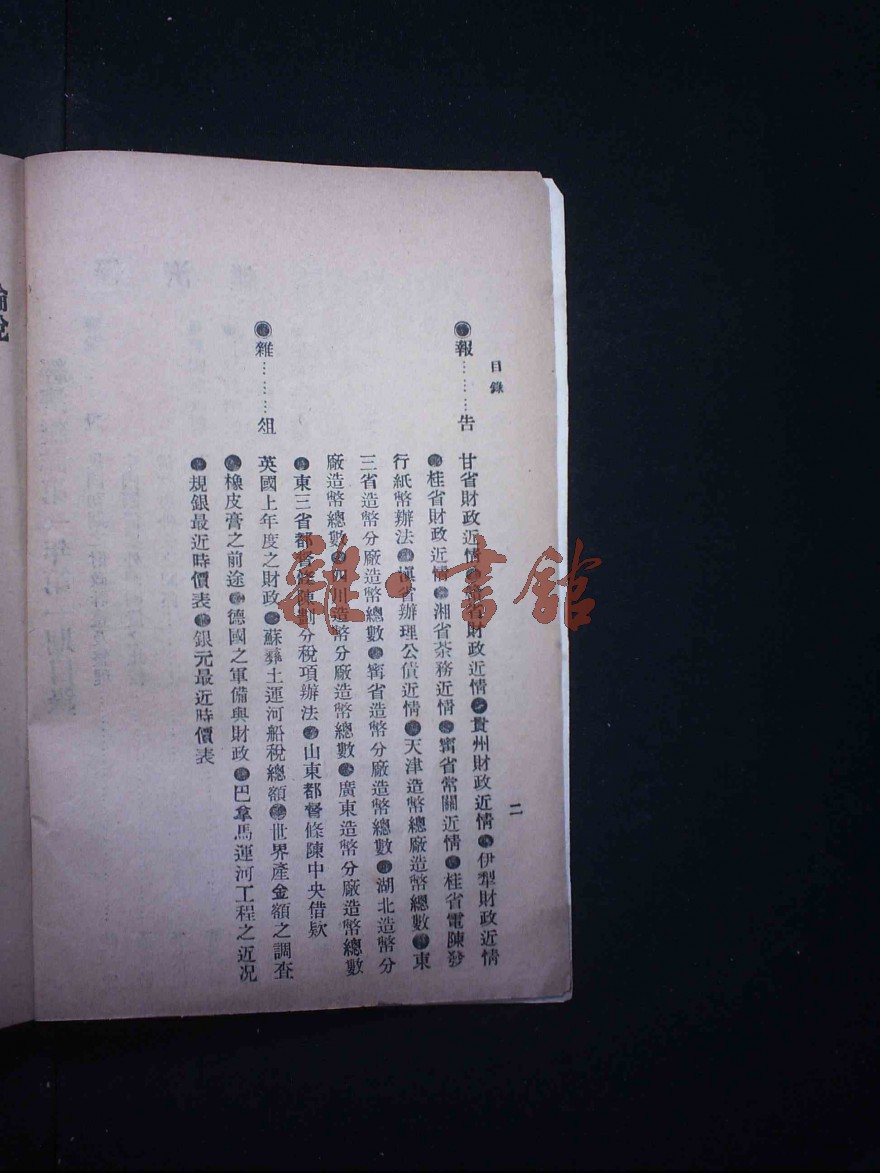 目錄
二
◉報………告
甘省財政近情●省財政近情●貴州財政近情●伊犁財政近情
●桂省財政近情●湘省茶務近情●甯省常關近情●桂省電陳發
行紙幣辦法●滇省辦理公債近情●天津造幣總廠造幣總數●東
三省造幣分廠造幣總數●甯省造幣分廠造幣總數●湖北造幣分
廠造幣總數●四川造幣分廠造幣總數●廣東造幣分廠造幣總數
●東三省都督條陳劃分稅項辦法●山東都督條陳中央借欵
◉雜………俎
英國上年度之財政●蘇彝士運河船稅總額●世界產金額之調查
●橡皮膏之前途●德國之軍備與財政●巴拿馬運河工程之近况
●規銀最近時價表●銀元最近時價表
雜·書館